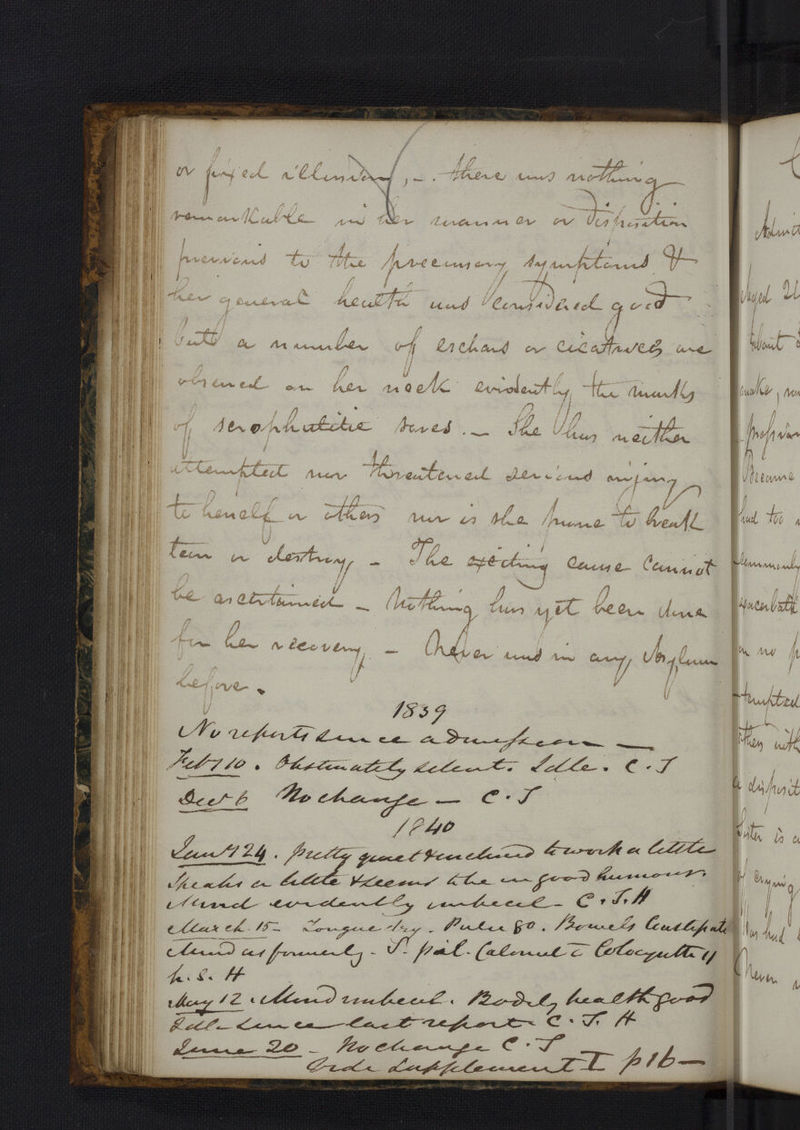 or fixed illusions, -. there was nothing
remarkable in her manner or disposition
previous to the precursory symptoms &
her general health was considered good
but a number of eschars or cicatrices are
observed on her neck evidently the marks
of scrophulitic sores. - She has neither
attempted nor threatened serious injury
to herself or others nor is she prone to break
tear or destroy - The exciting cause cannot
be ascertained - Nothing has yet been done
for her recovery - Never was in any Asylum
before.
1839
No reports since admission -
Feby 10. Obstinately silent. Idle. C.T
Decr 6 No change - C.T
1840
Jany 24. pretty quiet & inclined to work a little
Speaks a little & seems to be in good humour.
Mind evidently imbecile - C.T.H
March 15 - Tongue dry. Pulse 80. Bowels Constipate
Mind as formerly - Calomel c Colocynth ij
h.s. H
May 12. Mind imbecile. Bodily health good
Idle since last report C.T. H
June 20 - No change C.T
Vide Supplement I p16 -
Admit
Aged 2
about
make,
Became
had too
commonly
exacerbat
on no p
tempted
thers with
a disposit
Sister is a
of crying
Has had
Never